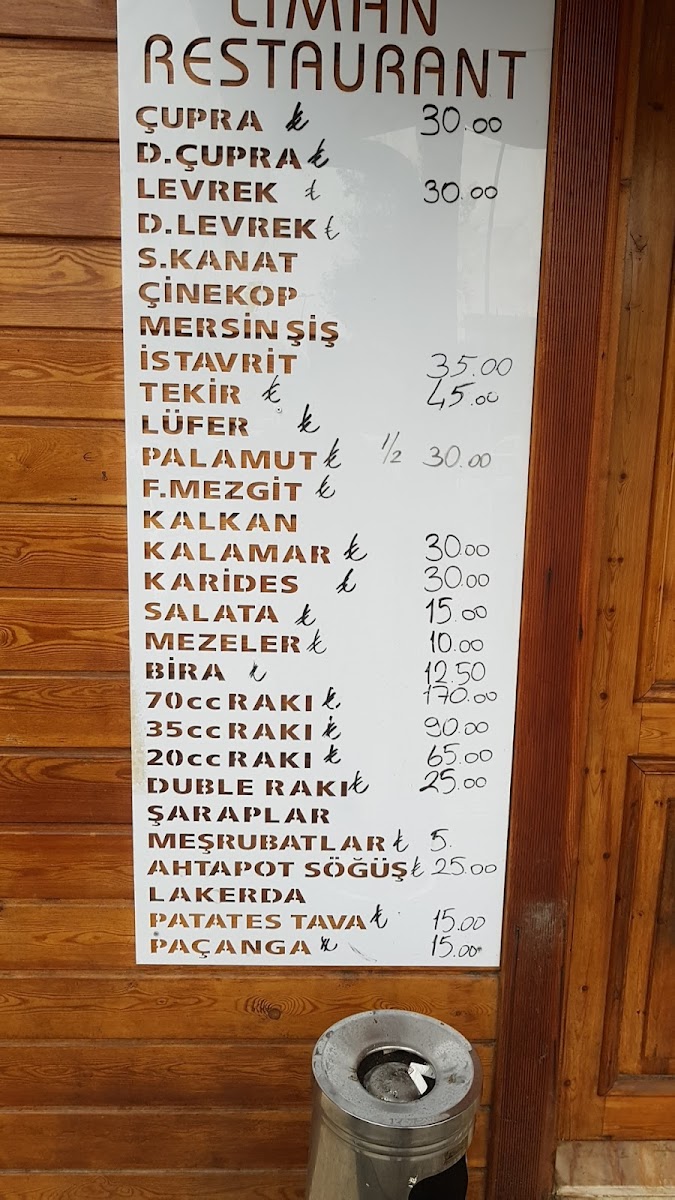 LİMAN
RESTAURANT
ÇUPRA ₺ 30.00
D.ÇUPRA ₺
LEVREK ₺ 30.00
D.LEVREK ₺
S.KANAT
ÇİNEKOP
MERSİN ŞİŞ
İSTAVRİT 35.00
TEKİR ₺ 45.00
LÜFER ₺
PALAMUT ₺ 1/2 30.00
F.MEZGİT ₺
KALKAN
KALAMAR ₺ 30.00
KARİDES ₺ 30.00
SALATA ₺ 15.00
MEZELER ₺ 10.00
BİRA ₺ 12.50
70cc RAKI ₺ 170.00
35cc RAKI ₺ 90.00
20cc RAKI ₺ 65.00
DUBLE RAKI ₺ 25.00
ŞARAPLAR
MEŞRUBATLAR ₺ 5.
AHTAPOT SÖĞÜŞ ₺ 25.00
LAKERDA
PATATES TAVA ₺ 15.00
PAÇANGA ₺ 15.00